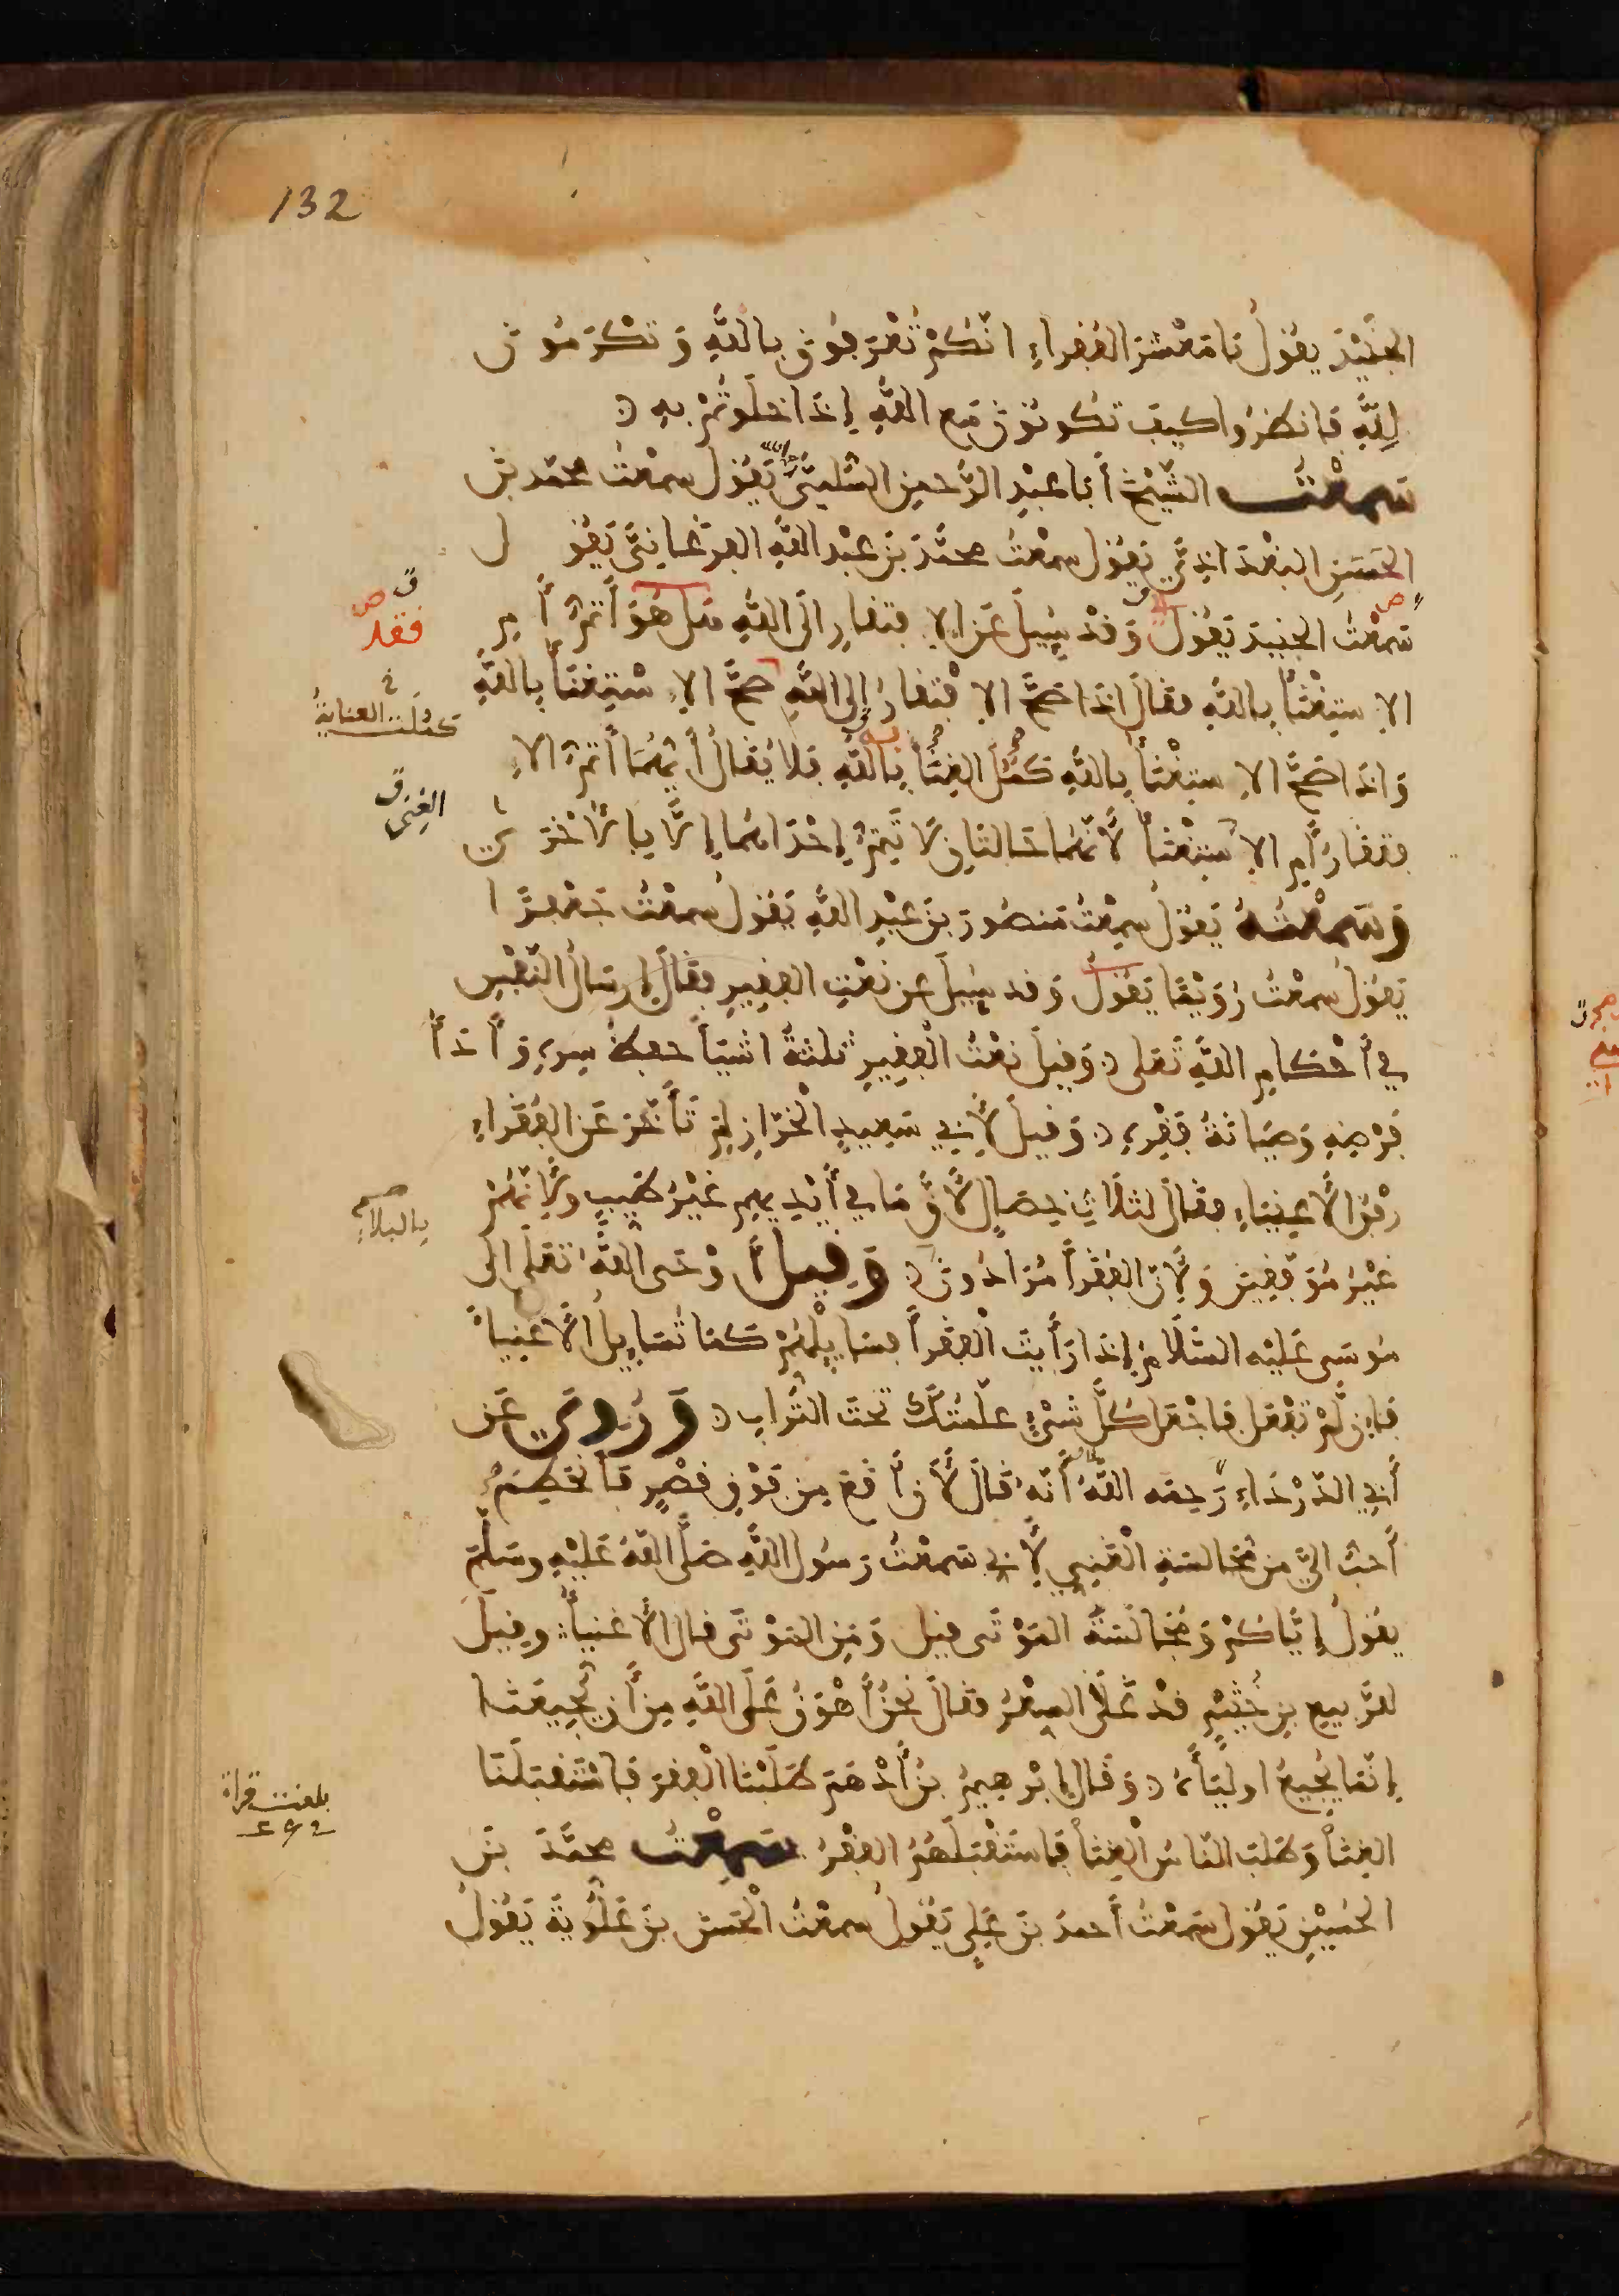 132
الجُنَيْدَ يقُولُ يَا مَعْشَرَ الفُقراءِ انّكُمْ تُعْرَفُونَ بِاللّهِ وَتُكْرَمُونَ
لِلّهِ فَانظُرُوا كيفَ تَكُونُونَ مَع اللّهِ إذَا خلَوتُمْ بهِ
سَمعْتُ الشّيْخَ أبَا عبْدِ الرَّحمنِ السُّلميَّ يَقُولُ سمعْتُ محمّد بنَ
الحَسَنِ البَغْدَادِيَّ يَقُولُ سمعْتُ محمَّدَ بنَ عبْدِ اللّهِ الفرغَانِيَّ يَقُولُ
سَمعْتُ الجنيدَ يَقُولُ وَقدْ سُيِلَ عَنِ الاِفتقارِ الَى اللّهِ هَل هُوَ أتمُّ أمِ
الاِستِغْنَأُ بِاللّهِ فقالَ اذَا صَحَّ الاِفْتقارُ إلى اللّهِ صحَّ الاِسْتِغْنَأُ بِاللّهِ
وَاذَا صَحَّ الاِستِغْنَأُ بِاللّهِ كمُلَ الغِنَأُ بِاللّهِ فلا يُقَالُ أيُّهُمَا أتمُّ الاِ
فتقارُ أمِ الاِستِغْنَأُ لأنّهُمَا حَالتَانِ لَا تَتِمُّ إحْدَاهُمَا إلَّا بِالأخْرَى
وَسَمعْتُهُ يَقُولُ سمِعْتُ مَنصُورَ بنَ عَبْدِ اللّهِ يَقُولُ سمعْتُ جَعْفرًا
يَقُولُ سمعْتُ رُوَيْمًا يَقُولُ وَقد سُيِلَ عن نَعْتِ الفقِيرِ فقالَ إرسَالُ النّفْسِ
في أحْكَامِ اللّهِ تَعَلى وَقيلَ نَعْتُ الفقِيرِ ثلثةُ اشيَأَ حفظُ سِرِّهِ وَأدَأُ
فَرْضِهِ وَصِيَانةُ فَقْرِهِ وَقيلَ لأَبِي سَعِيدٍ الخرّازِ لِمَ تَأخّرَ عَنِ الفُقَراءِ
رِفْقُ الأَغنِيَاءِ فقالَ لثلَاثِ خِصَالٍ لأَنَّ مَا في أيْدِيهِم غَيْرُ طَيِّبٍ وَلأَنّهُمْ
غَيْرُ مُوَفّقِينَ وَلأَنّ الفُقرأَ مُرَادُونَ بالبلاءِ وَقِيلَ أوْحَى اللّهُ تَعَلى الى
مُوسَى عَلَيْه السّلَامُ إذَا رَأَيتَ الفقرأَ فسَايِلْهُمْ كمَا تُسَايِلُ الأَغنِيأَ
فَإن لَّمْ تَفْعَل فَاجْعَل كُلَّ شَيْءٍ علّمْتُكَ تحتَ التُّرَابِ وَرُوِيَ عَن
أبِي الدّرْدَاءِ رَحِمَه اللّهُ أنّهُ قالَ لأَن أَقعَ مِن فَوْقِ قَصْرٍ فَأَنحَطِمَ
أَحبُّ اليَّ مِن مُجَالسَةِ الغَنِي لأَنّي سَمعْتُ رَسُولَ اللّهِ صَلَّى اللّهُ عَلَيْهِ وسَلّمَ
يقُولُ إيَّاكُمْ وَمُجَالَسَةَ المَوْتَى قيلَ وَمَنِ المَوْتَى قال الأَغنيأُ وقيلَ
للرَّبيعِ بنِ خُثَيْمٍ قدْ غَلَا السِعْرُ فقالَ نَحْنُ أَهْوَنُ عَلَى اللّهِ مِن أن يُجِيعَنَا
إنّمَا يُجِيعُ اوليَأَهُ وَقالَ إبْرَهيمُ بنُ أدْهَمَ طَلَبْنَا الفقرَ فَاسْتَقبَلَنَا
الغِنَأُ وَطَلبَ النّاسُ الغِنَأَ فَاستَقْبَلَهُمُ الفقْرُ سَمِعْتُ محمَّدَ بنَ
الحُسَيْنِ يَقُولُ سَمعْتُ أحمدَ بنَ عَلِيٍ يَقُولُ سمعْتُ الحَسَنَ بنَ عَلُّويَةَ يَقُولُ
فقد
كملت العنايةُ
الغِنى
بالبلاءِ
بلغت قراة